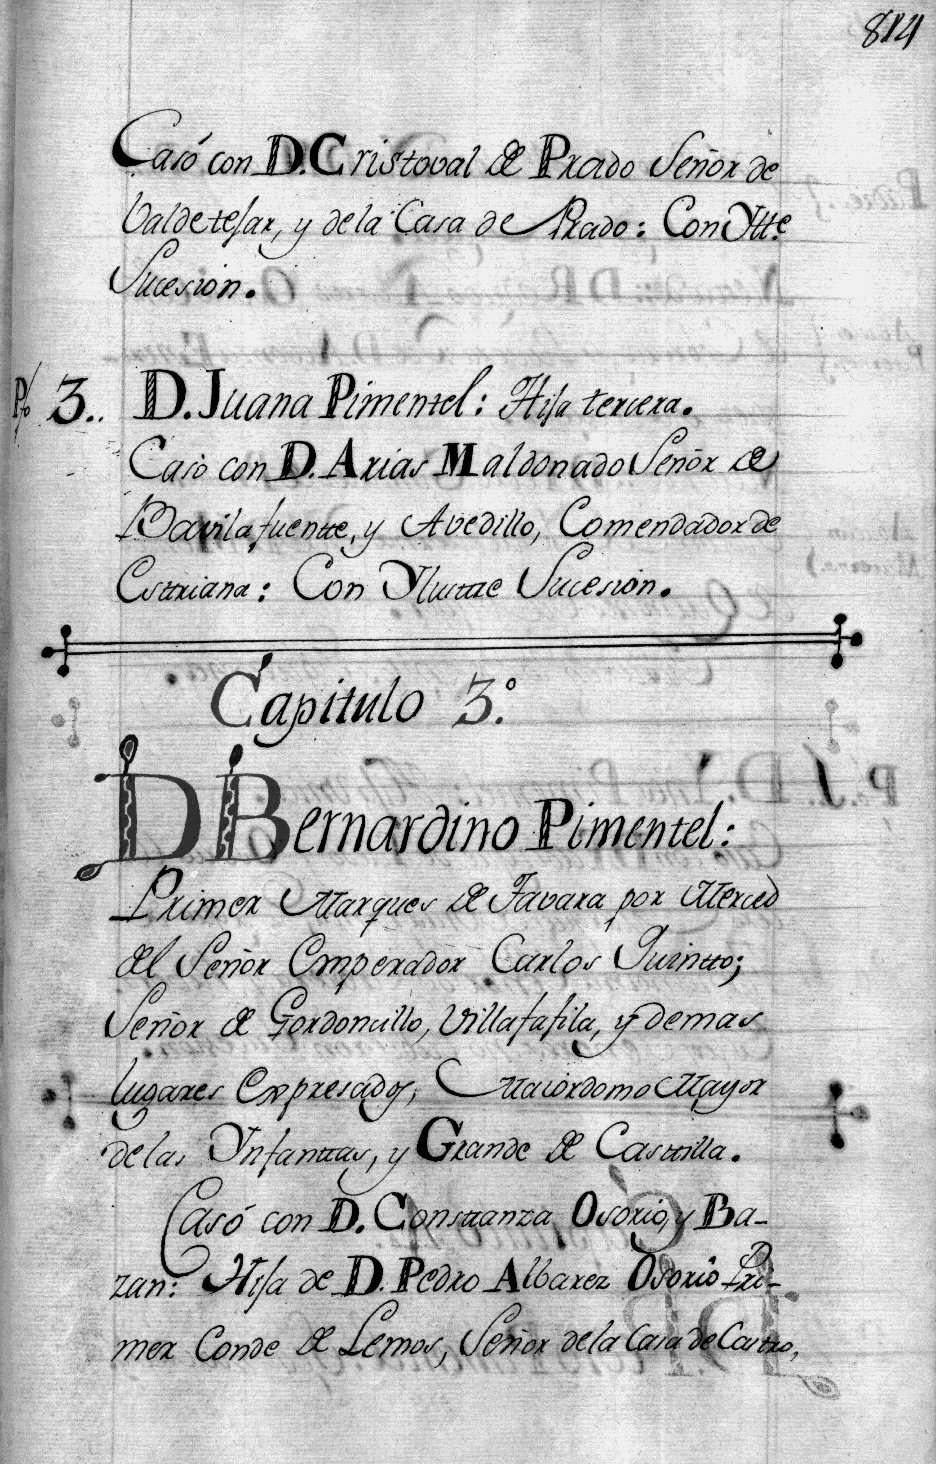 814
Casó con D. Cristoval de Prado Señor de
Valdetesar, y de la Casa de Prado: Con Ytt.e
Sucesion.
P.o 3.. D. Juana Pimentel: Hija tercera.
Casò con D. Arias Maldonado Señor de
Bavilafuentte, y Avedillo, Comendador de
Esttriana: Con Ylusttre Sucesion.
Capitulo 3.o
D Bernardino Pimentel:
Primer Marques de Tavara por Merced
del Señor Emperador Carlos Quintto;
Señor de Gordoncillo, Villafafila, y demas
lugares Expresados; Maiordomo Mayor
de las Ynfanttas, y Grande de Casttilla.
Casó con D. Consttanza Osorio, y Ba-
zan: Hija de D. Pedro Albarez Osorio Pri-
mer Conde de Lemos, Señor de la Casa de Castro,